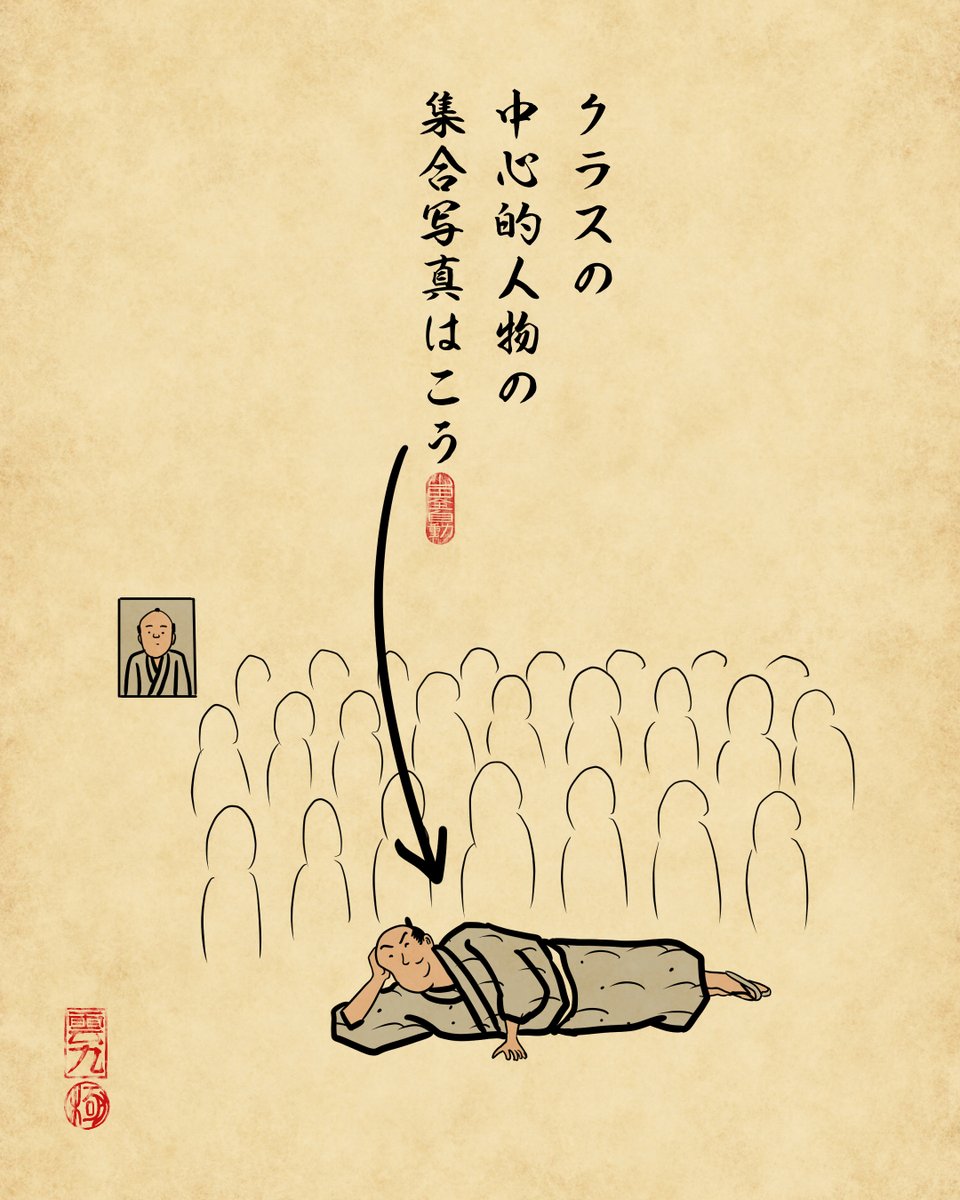 クラスの
中心的人物の
集合写真はこう